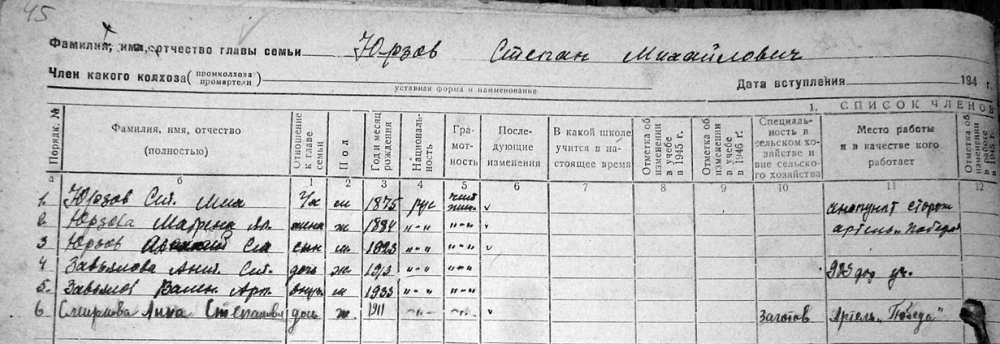 45
Фамилия, имя, отчество главы семьи Юрзов Степан Михайлович
Член какого колхоза (промколхоза промартели)
уставная форма и наименование
Дата вступления 194 г.
1. СПИСОК ЧЛЕНОВ
Порядк. № Фамилия, имя, отчество (полностью) Отношение к главе семьи Пол Год и месяц рождения Националь-ность Гра-мот-ность После-дующие изменения В какой школе учится в на-стоящее время Отметка об изменении в учебе в 1945 г. Отметка об изменении в учебе в 1946 г. Специаль-ность в сельском хо-зяйстве и вне сельско-го хозяйства Место работы и в качестве кого работает Отметка об изменении в работе в 1945 г.
а б 1 2 3 4 5 6 7 8 9 10 11 12
1. Юрзов Ст. Мих м 1875 рус v сторож
2 Юрзова Матрена жена ж 1884 "-" "-" v артель "Победа"
3 Юрзов Ст сын м 1923 "-" "-" v
4 Завьялова Анит. Ст. дочь ж 1913 "-" "-"
5. Завьялов Вален. Арт. внук м 1933 "-" "-" v
6 Смирнова Анна Степановна дочь ж. 1911 -"- -"- v Заготов Артель "Победа"